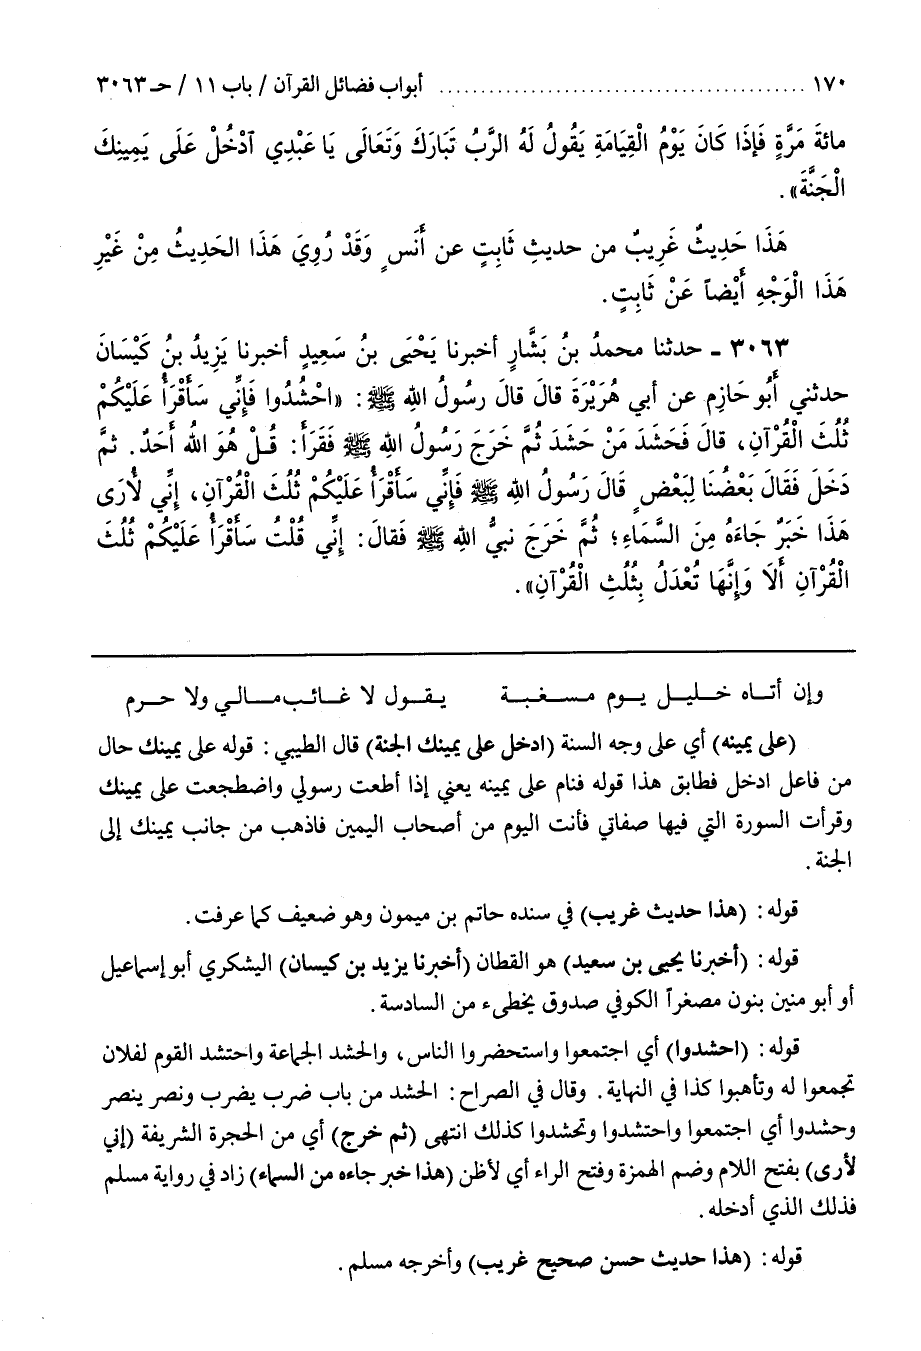 ١٧٠ ........................................ أبواب فضائل القرآن / باب ١١ / حـ ٣٠٦٣
مائةَ مَرَّةٍ فَإِذَا كَانَ يَوْمُ الْقِيَامَةِ يَقُولُ لَهُ الرَّبُّ تَبَارَكَ وَتَعَالَى يَا عَبْدِي آدْخُلْ عَلَى يَمِينِكَ
الْجَنَّةَ».
هَذَا حَدِيثٌ غَرِيبٌ من حديثِ ثَابِتٍ عن أَنَسٍ وَقَدْ رُوِيَ هَذَا الحَدِيثُ مِنْ غَيْرِ
هَذَا الْوَجْهِ أَيْضاً عَنْ ثَابِتٍ.
٣٠٦٣ ـ حدثنا محمدُ بنُ بَشَّارٍ أخبرنا يَحْيَى بنُ سَعِيدٍ أخبرنا يَزِيدُ بنُ كَيْسَانَ
حدثني أَبُو حَازِمٍ عن أبي هُرَيْرَةَ قالَ قالَ رسُولُ اللهِ ﷺ: «احْشُدُوا فَإِنِّي سَأَقْرَأُ عَلَيْكُمْ
ثُلُثَ الْقُرْآنِ، قالَ فَحَشَدَ مَنْ حَشَدَ ثُمَّ خَرَجَ رَسُولُ اللهِ ﷺ فَقَرَأَ: قُلْ هُوَ اللهُ أَحَدٌ. ثمَّ
دَخَلَ فَقَالَ بَعْضُنَا لِبَعْضٍ قَالَ رَسُولُ اللهِ ﷺ فَإِنِّي سَأَقْرَأُ عَلَيْكُمْ ثُلُثَ الْقُرْآنِ، إِنِّي لأُرَى
هَذَا خَبَرٌ جَاءَهُ مِنَ السَّمَاءِ؛ ثُمَّ خَرَجَ نبيُّ اللهِ ﷺ فَقالَ: إِنِّي قُلْتُ سَأَقْرَأُ عَلَيْكُمْ ثُلُثَ
الْقُرْآنِ أَلَا وَإِنَّهَا تُعْدَلُ بِثُلُثِ الْقُرْآنِ».
وإن أتاه خليل يوم مسغبة يقول لا غائب مالي ولا حرم
(على يمينه) أي على وجه السنة (ادخل على يمينك الجنة) قال الطيبي: قوله على يمينك حال
من فاعل ادخل فطابق هذا قوله فنام على يمينه يعني إذا أطعت رسولي واضطجعت على يمينك
وقرأت السورة التي فيها صفاتي فأنت اليوم من أصحاب اليمين فاذهب من جانب يمينك إلى
الجنة.
قوله: (هذا حديث غريب) في سنده حاتم بن ميمون وهو ضعيف كما عرفت.
قوله: (أخبرنا يحيى بن سعيد) هو القطان (أخبرنا يزيد بن كيسان) اليشكري أبو إسماعيل
أو أبو منين بنون مصغراً الكوفي صدوق يخطىء من السادسة.
قوله: (احشدوا) أي اجتمعوا واستحضروا الناس، والحشد الجماعة واحتشد القوم لفلان
تجمعوا له وتأهبوا كذا في النهاية. وقال في الصراح: الحشد من باب ضرب يضرب ونصر ينصر
وحشدوا أي اجتمعوا واحتشدوا وتحشدوا كذلك انتهى (ثم خرج) أي من الحجرة الشريفة (إني
لأرى) بفتح اللام وضم الهمزة وفتح الراء أي لأظن (هذا خبر جاءه من السماء) زاد في رواية مسلم
فذلك الذي أدخله.
قوله: (هذا حديث حسن صحيح غريب) وأخرجه مسلم.